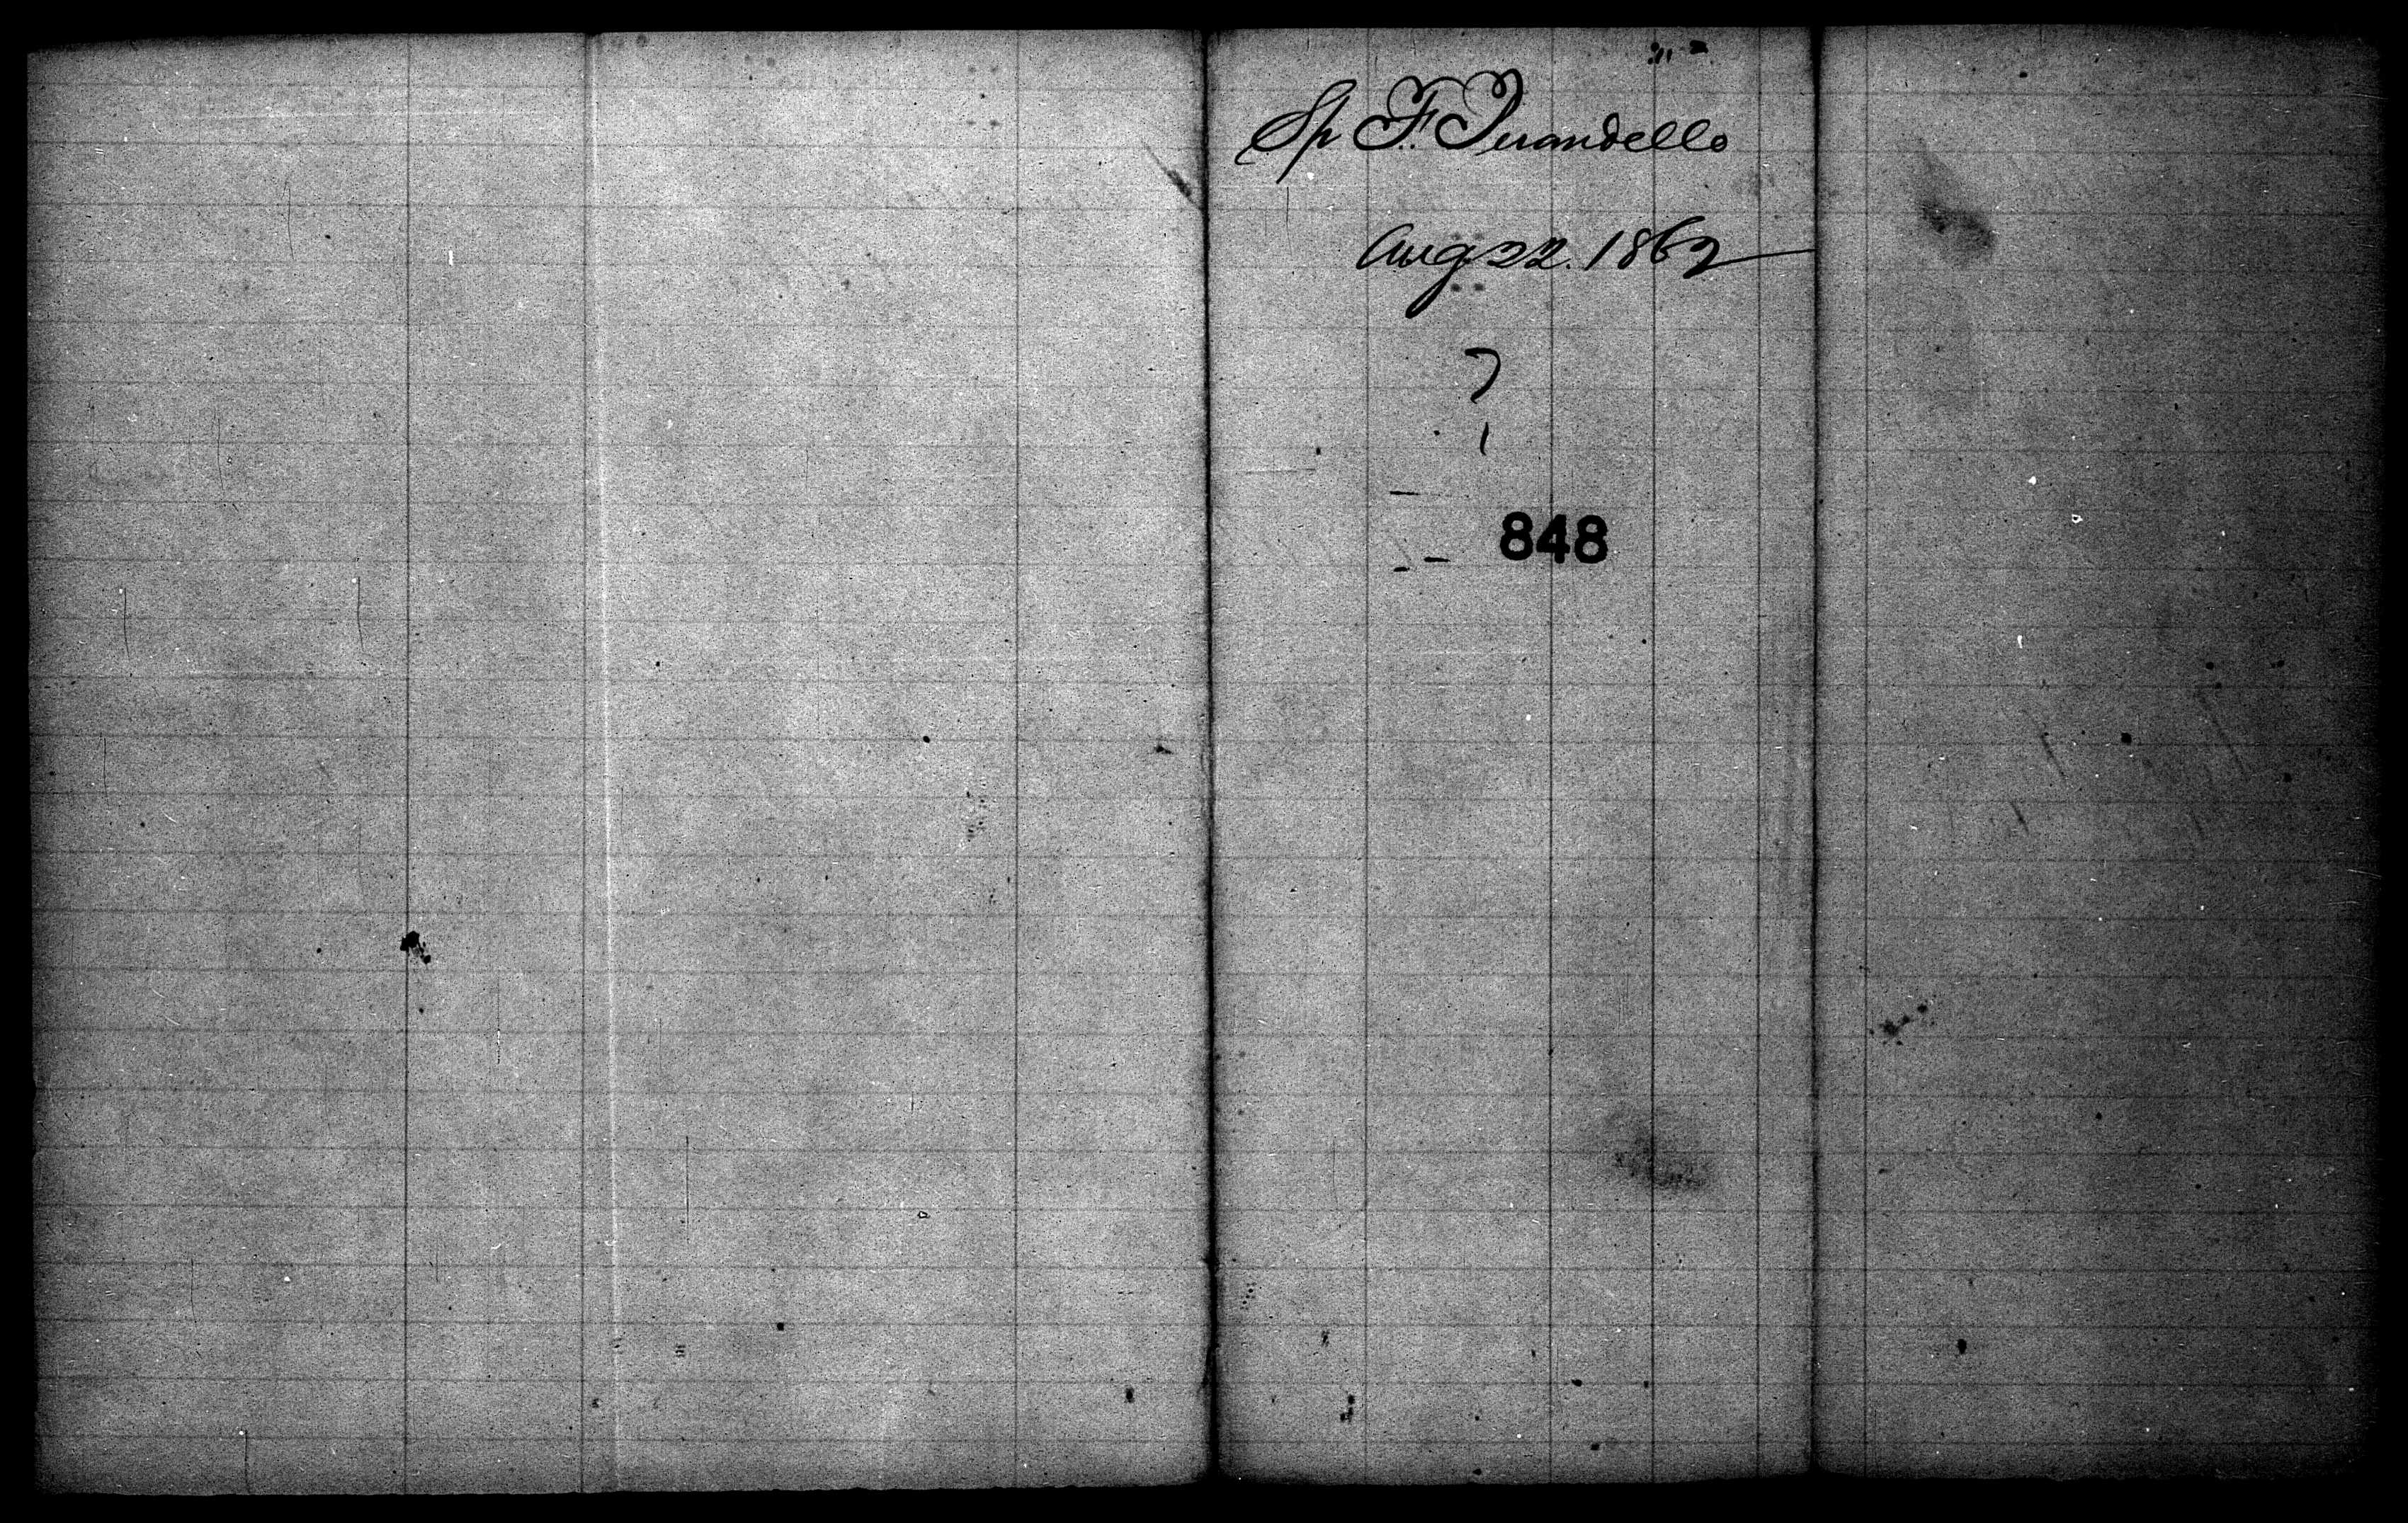 Sp F. Pirandello
Aug 22. 1862
7
1
848